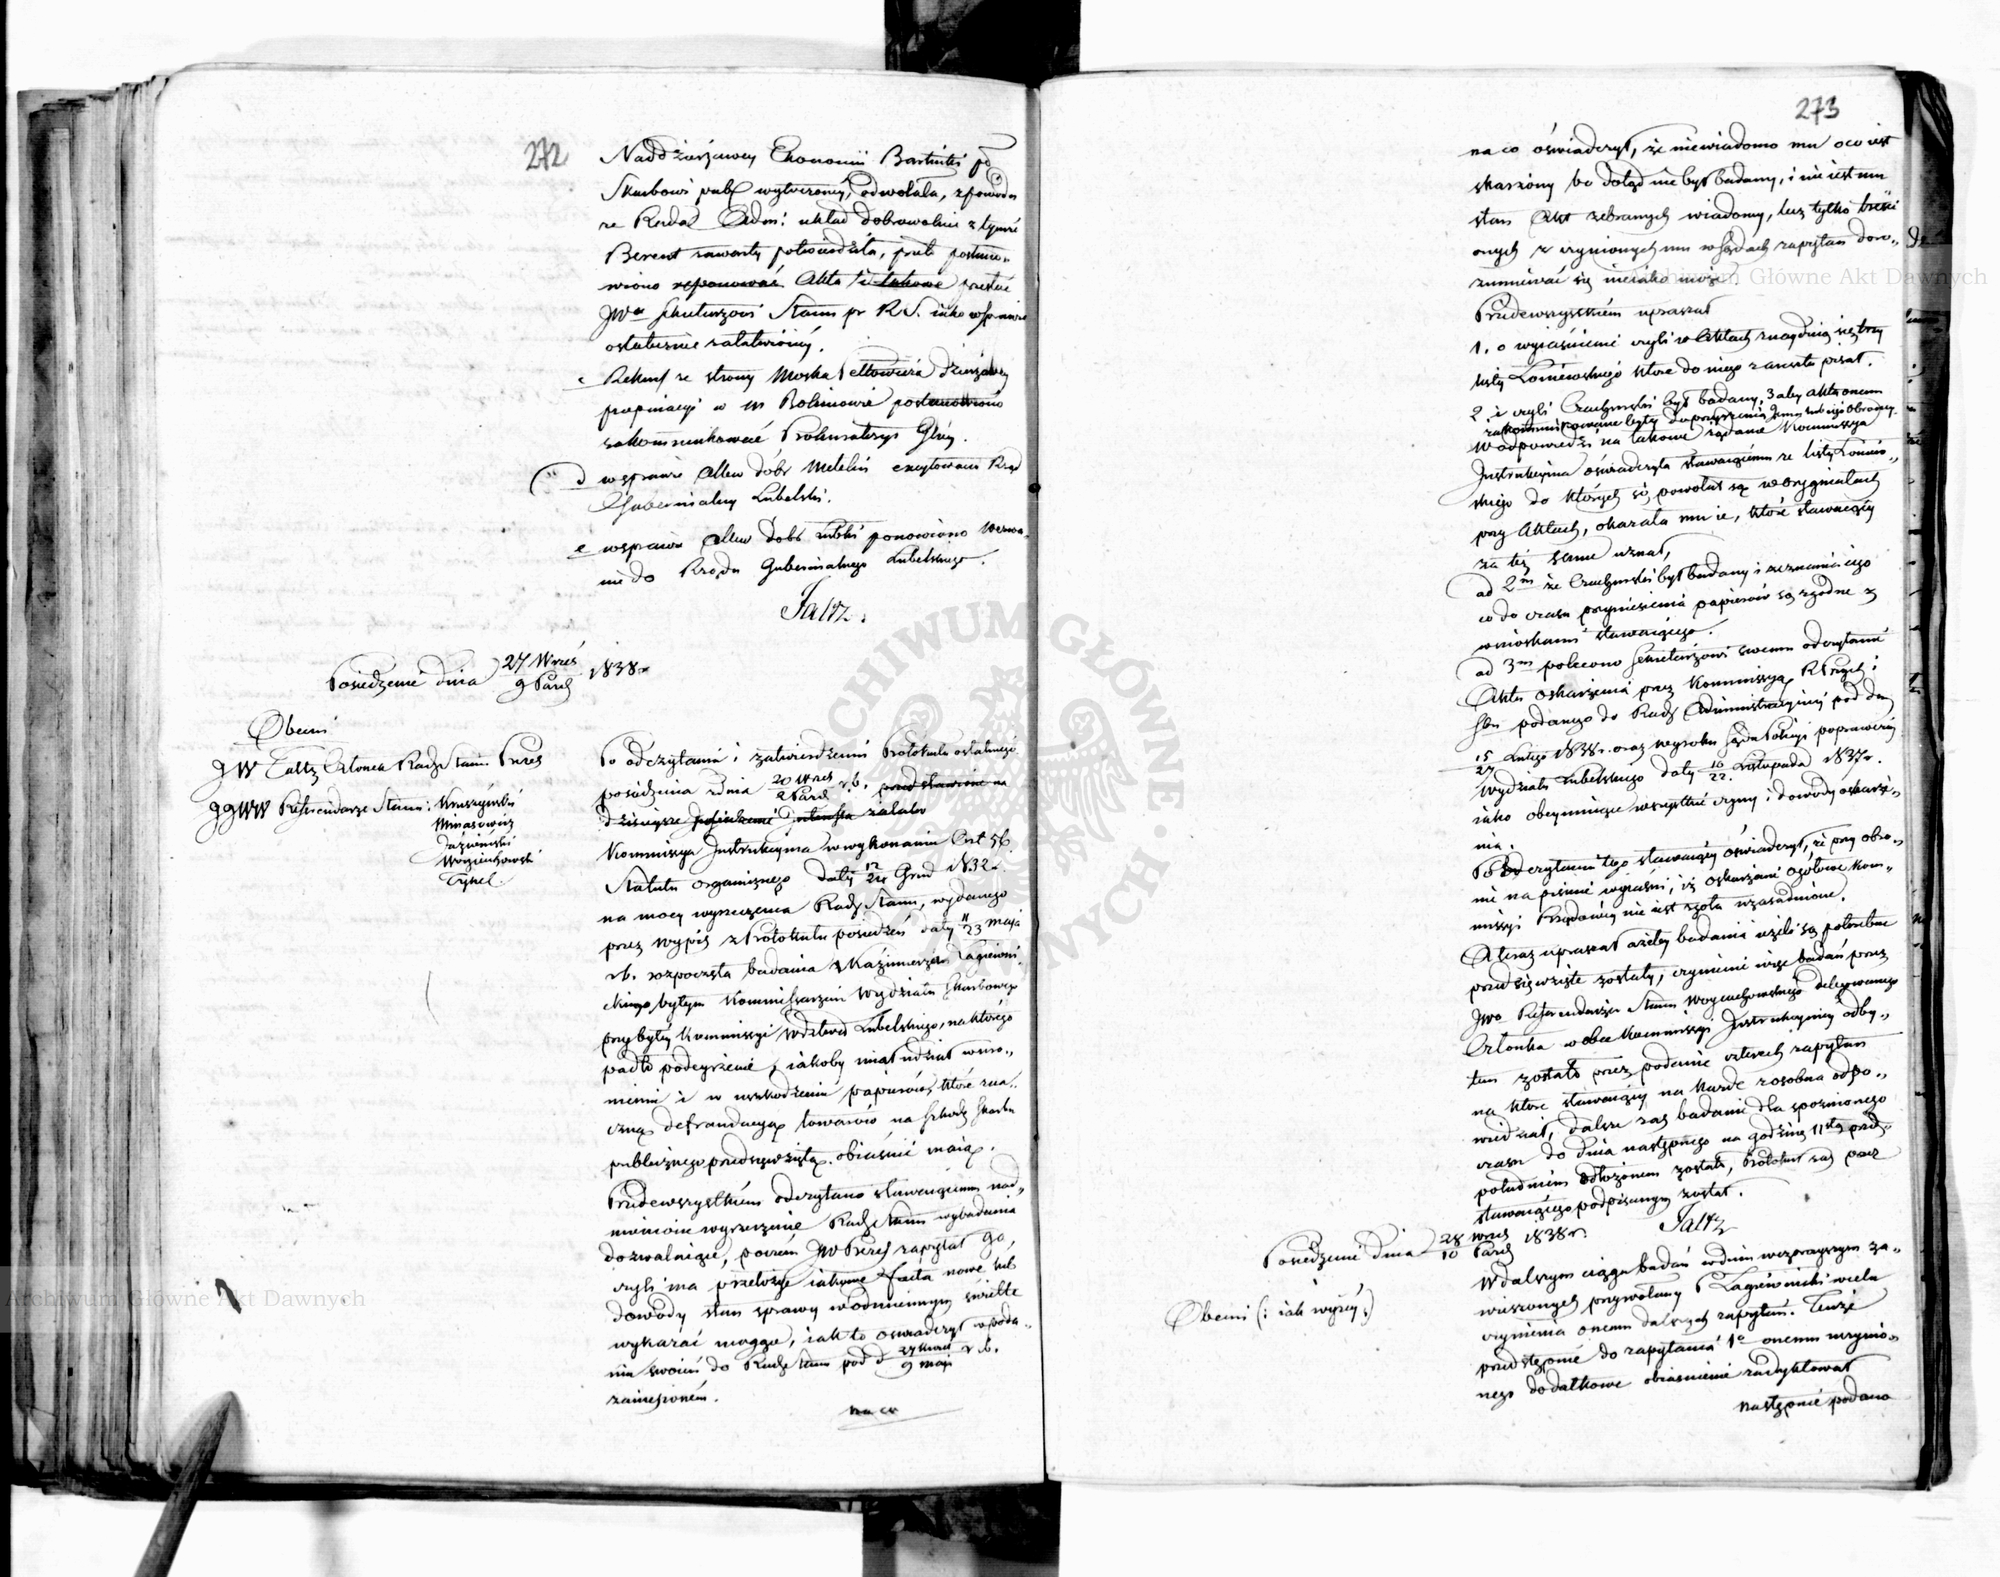 272
Naddzierżawcy Ekonomii
Skarbowi publ wytoczonéy, odwołała, z powodu
że Rada Adm: układ dobrowolnie z tymże
Berent zawarty potwierdziła, przeto postano-
wiono reponować Akta i takowe przesłać
JWmu Sekretarzowi Stanu pr RS. iako w Sprawie
ostatecznie załatwionéy.
c Rekurs ze strony Moska dzierżawcy
propinacyi w m Bolimowie postanowiono
zakommunikować Prokuratoryi Głów.
d w sprawie dóbr excytować Rząd
Gubernialny Lubelski.
e w sprawie dóbr ponowiono wezwa-
nie do Rządu Gubernialnego Lubelskiego.
Faltz.
Posiedzenie dnia 27 Wrześ / 9 Paźd 1838 r
Obecni
JW Faltz Członek Rady Stanu Prezes
JJWW Referendarze Stanu:
Minasowicz
Woyciechowski
Tykel.
Po odczytaniu i zatwierdzeniu Protokułu ostatniego
posiedzenia z dnia 20 Wrześ / 2 Paźd r. b. przedstawione na
dzisieysze posiedzenie
Kommissya Instrukcyina w wykonaniu Art 56.
Statutu organicznego daty 12/24 Grud 1832 r.
na mocy wyrzeczenia Rady Stanu, wydanego
przez wypis z Protokułu posiedzeń daty 11/23 maja
r b. rozpoczęła badania z Kazimierzem Łagiewni-
ckim, byłym Kommissarzem Wydziału Skarbowego
przy byłéy Kommissyi Wdztwa Lubelskiego, na którego
padło podeyrzenie, iakoby miał udział w usu-
nieniu i w uszkodzeniu papierów, które zna-
czną defraudacyą towarów na szkodę Skarbu
publicznego przedsięwziętą obiaśnić maią.
Przedewszystkiem odczytano stawaiącemu nad-
mienione wyrzeczenie Rady Stanu wybadania
dozwalaiące, poczém JW Prezes zapytał go,
czyli ma przełożyć iakowe facta nowe lub
dowody stan sprawy w odmiennym świetle
wykazać mogące, iak to oświadczył w poda-
niu swoiem do Rady Stanu pod d 27 kwiet / 9 maja r. b.
zaniesioném.
na co
273
na co oświadczył, że niewiadomo mu o co iest
skarżony bo dotąd nie był badany, i nie iest mu
stan Akt zebranych wiadomy, lecz tylko treści
onych z czynionych mu w Sądach zapytań doro-
zumiewać się nieiako może.
Przedewszystkiém upraszał
1. o wyiaśnienie czyli w Aktach znayduią się trzy
listy Łoniewskiego które do niego z aresztu pisał.
2. i czyli był badany, 3 aby Akta onemu
zakommunikowane były dopuszczenia Jemu lub iego Obrońcy.
W odpowiedzi na takowe żądanie Kommissya
Instrukcyina oświadczyła stawaiącemu że listy Łoniew-
skiego do których się powołał są w oryginałach
przy Aktach, okazała mu ie, które stawaiący
za też same uznał,
ad 2m że był badany i zeznania iego
co do czasu przyniesienia papierów są zgodne z
wnioskami stawaiącego.
ad 3m polecono Sekretarzowi swemu odczytanie
Aktu oskarżenia przez Kommissyą R Przych i
Sbu podanego do Rady Administracyinéy pod dn
15/27 Lutego 1838 r. oraz wyroku Sądu Policyi poprawczéy
Wydziału Lubelskiego daty 10/22 Listopada 1837 r.
iako obeymuiące wszystkie czyny i dowody oskarże-
nia.
Po odczytaniu tego stawaiący oświadczył, iż przy obro-
nie na piśmie wyiaśni, iż oskarżenie ogólne Kom-
missyi Rządowéy nie iest zgoła uzasadnione.
A teraz upraszał ażeby badania ieżeli są potrzebne
przedsięwzięte zostały, czynienie więc badań przez
JWo Referendarza Stanu Woyciechowskiego delegowanego
Członka w obec Kommissyi Instrukcyinéy odby-
tem zostało przez podanie czterech zapytań
na które stawaiący na każde z osobna odpo-
wiedział, dalsze zaś badanie dla spóźnionego
czasu do dnia następnego na godzinę 11stą przed
południem odłożonem zostało, Protokuł zaś przez
stawaiącego podpisanym został.
Faltz
Posiedzenie dnia 28 Wrześ / 10 Paźd 1838 r.
Obecni (: iak wyżéy :)
W dalszym ciągu badań w dniu wczorayszym za-
wieszonych przywołany P Łagiewnicki w celu
czynienia onemu dalszych zapytań. Tenże
przed stąpnie do zapytania 1o onemu uczynio-
nego dodatkowe obiaśnienie zadyktował
następnie podano